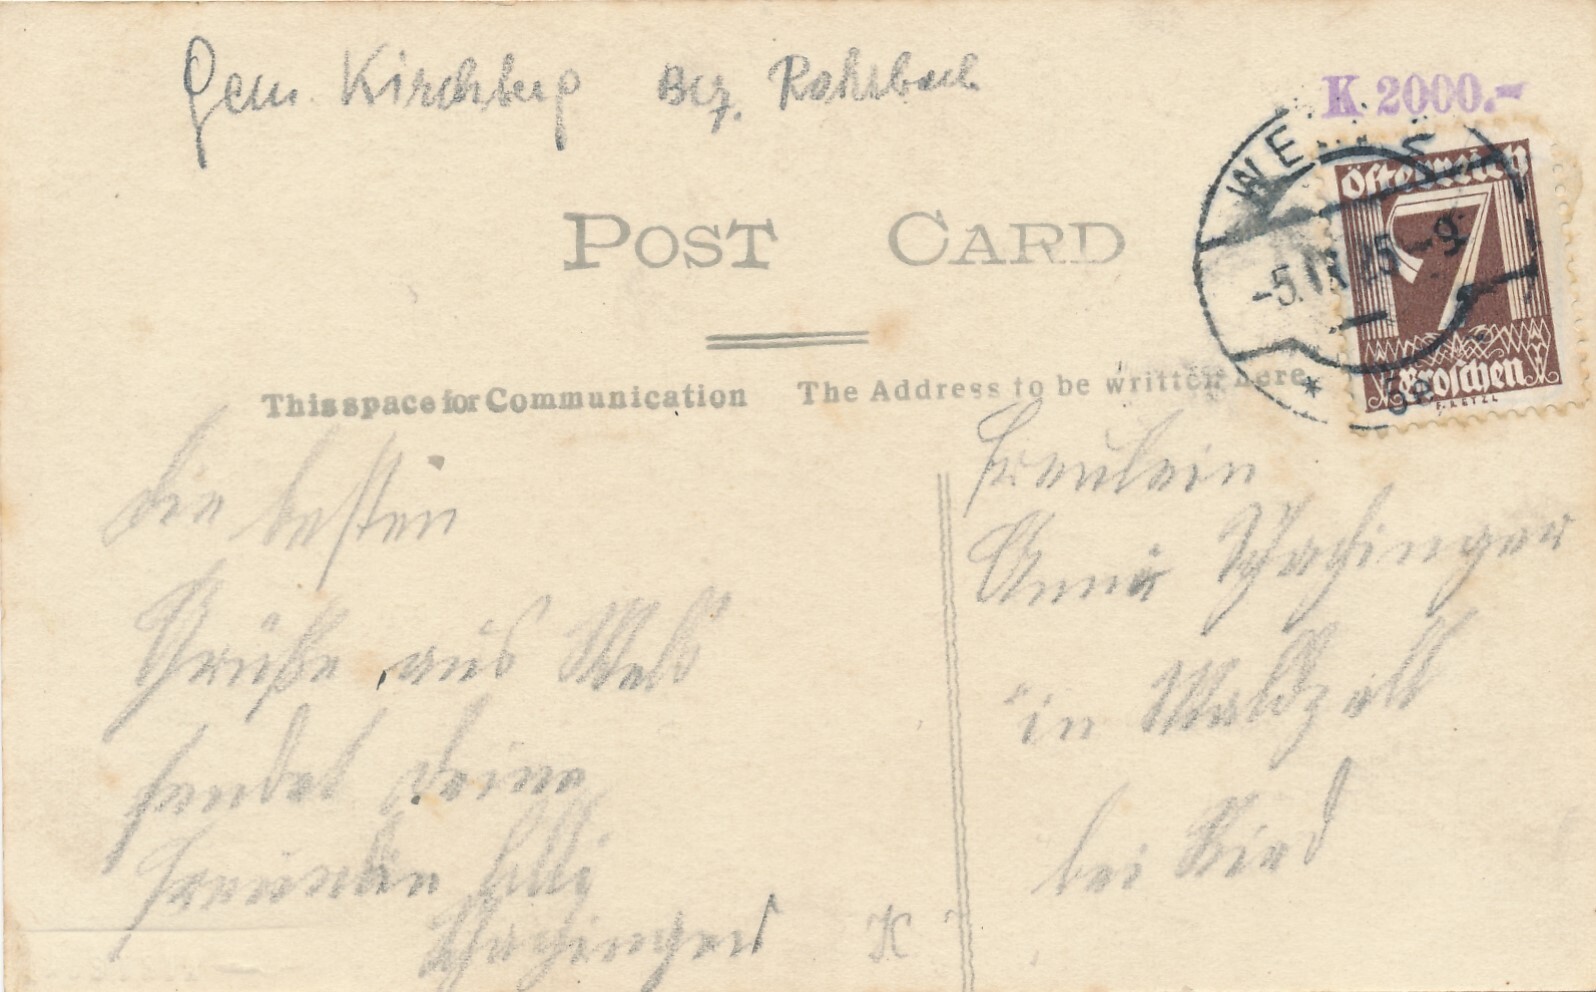 Gem. Kirchberg Bez. Rohrbach
K 2000.-
WE S
-5.IX.25-9
* 5e
Österreich
7
Groschen
POST CARD
This space for Communication
The Address to be written here
Die besten
Grüße aus Wels
sendet Deine
Freundin
Schachinger
K
Fräulein
Anna Schachinger
in Waldzell
bei Ried